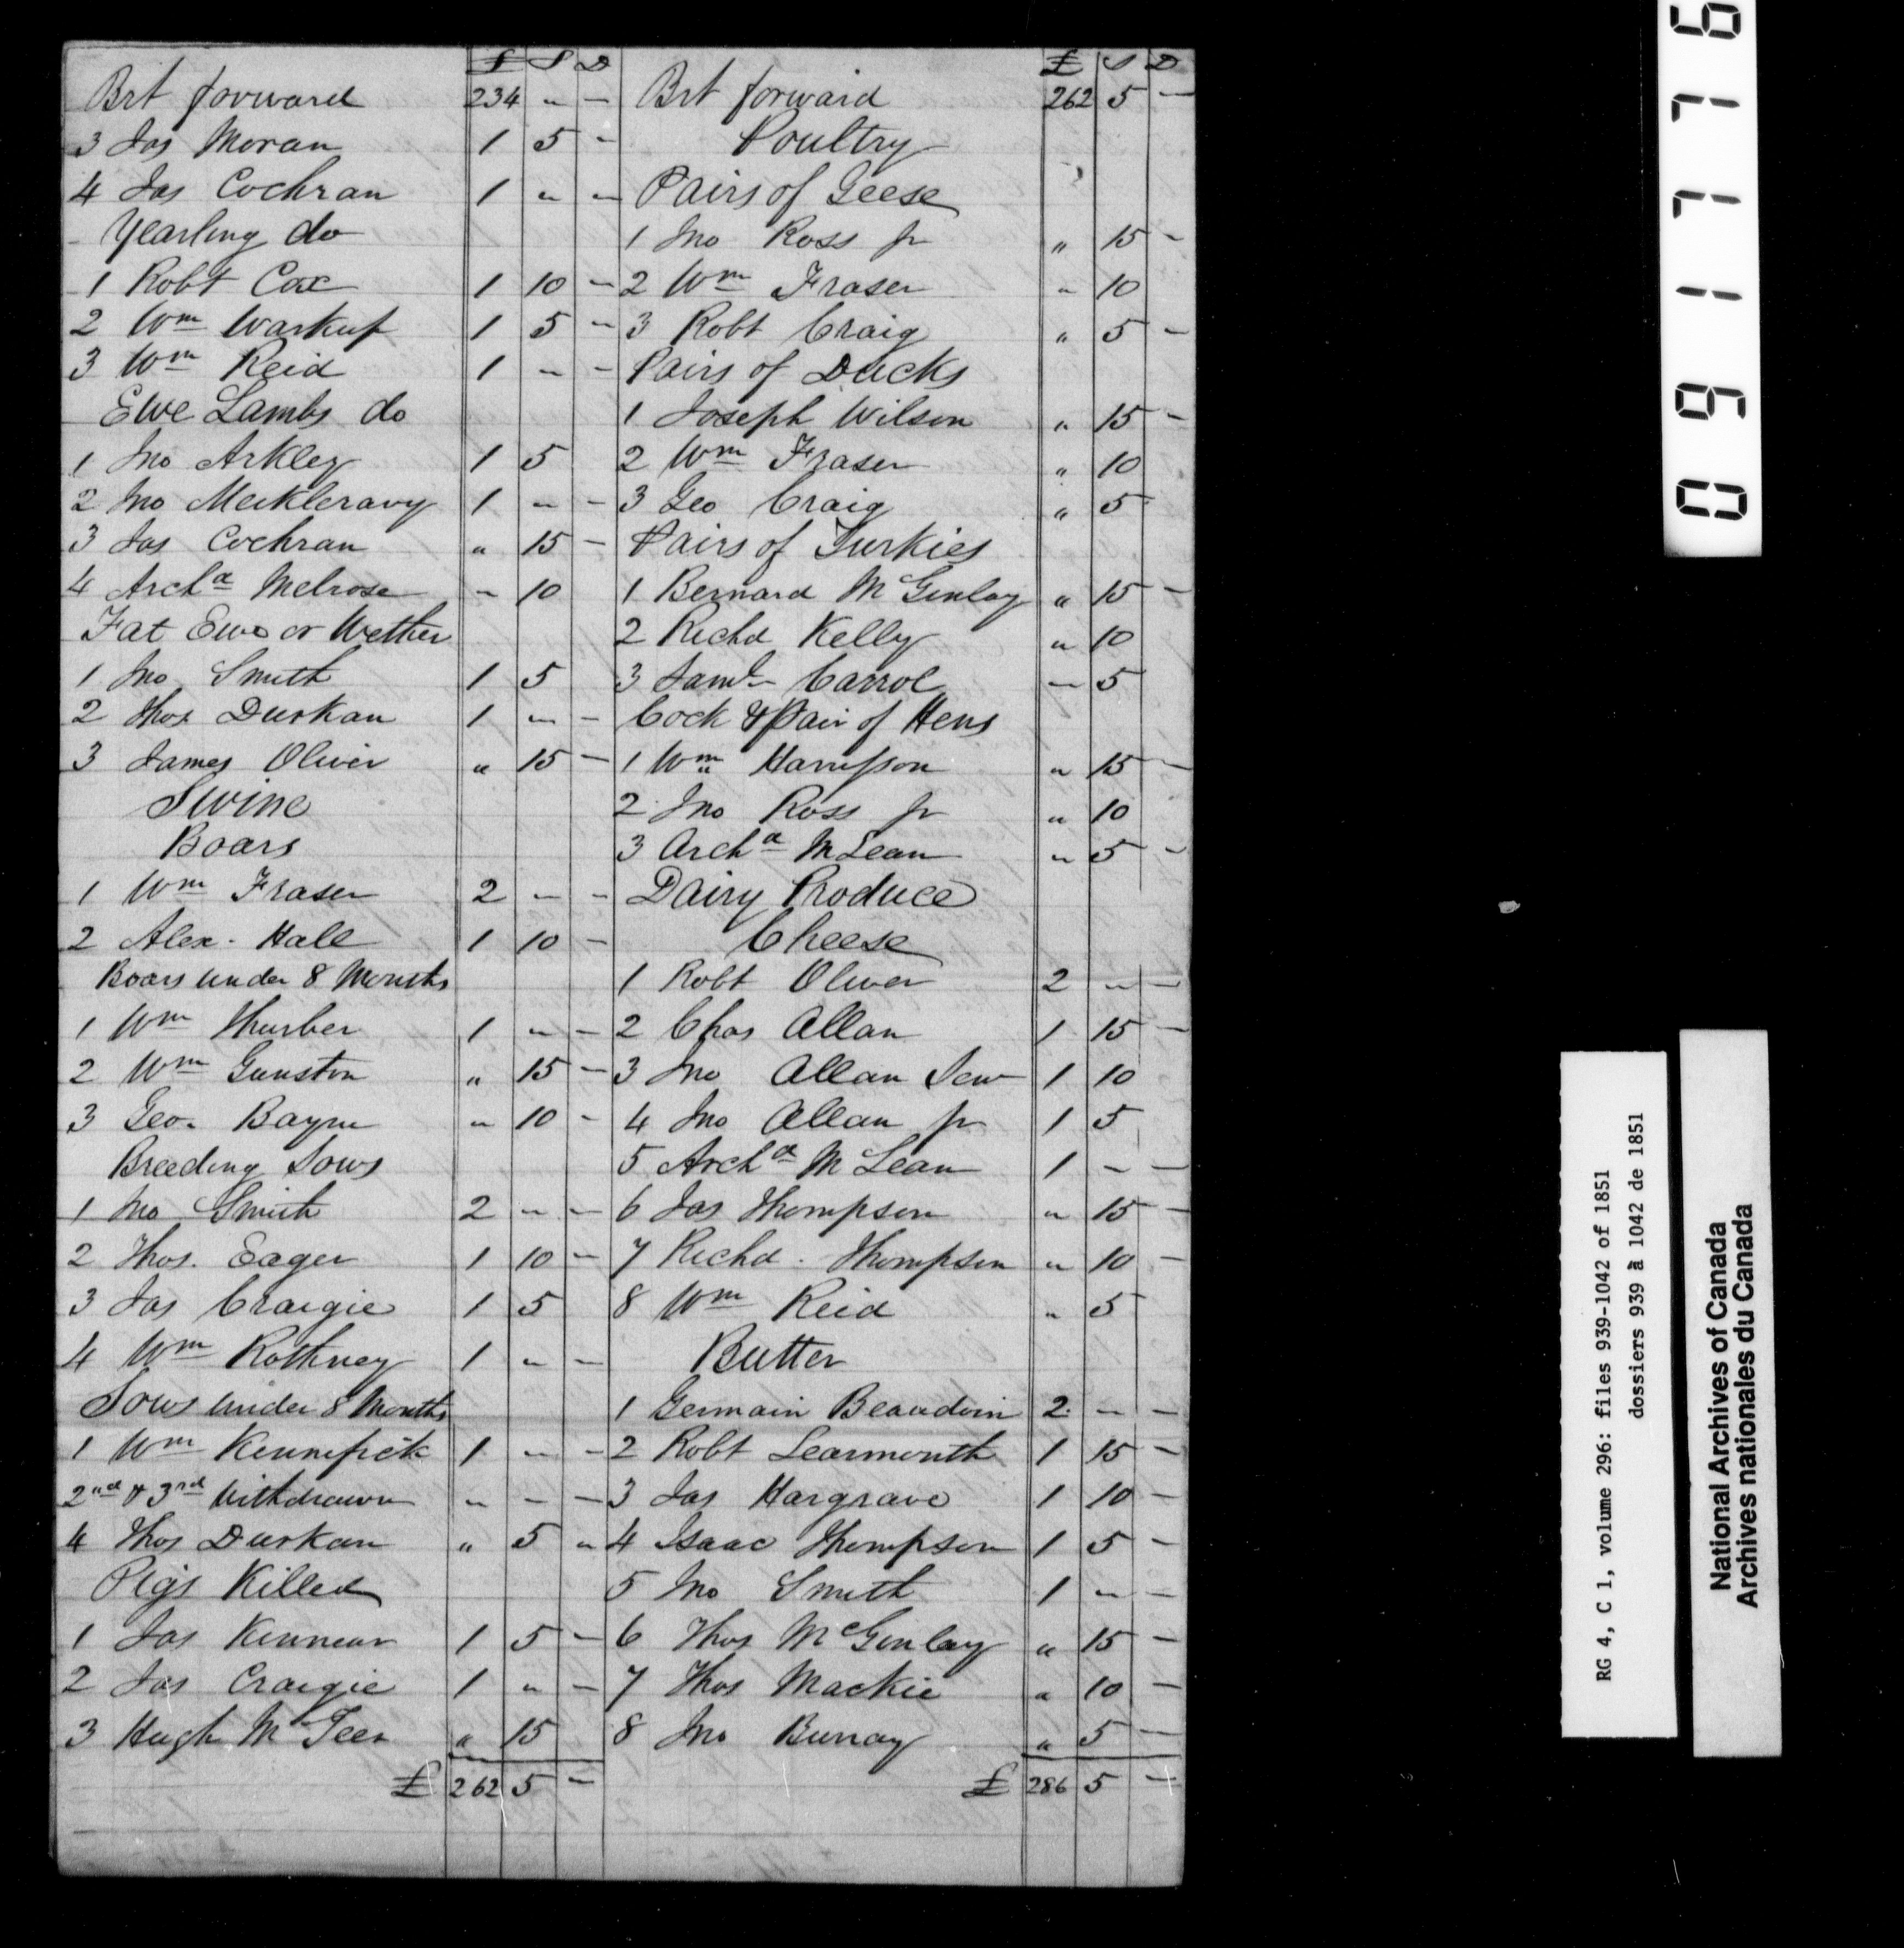 £ S D
Brt forward 234 " –
3 Jas Moran 1 5 –
4 Jas Cochran 1 " –
Yearling do
1 Robt Cox 1 10 –
2 Wm Warkup 1 5 –
3 Wm Reid 1 – –
Ewe Lambs do
1 Jno Arkley 1 5
2 Jno Meikleravy 1 – –
3 Jas Cochran " 15 –
4 Archd Melrose – 10
Fat Ewe or Wether
1 Jno Smith 1 5
2 Thos Durkan 1 – –
3 James Oliver " 15 –
Swine
Boars
1 Wm Fraser 2 – –
2 Alex. Hall 1 10 –
Boars under 8 Months
1 Wm Thurber 1 " –
2 Wm Gunston " 15 –
3 Geo. Bayne " 10 –
Breeding Sows
1 Jno Smith 2 " –
2 Thos. Eager 1 10 –
3 Jas Craigie 1 5
4 Wm Rothney 1 " –
Sows under 8 Months
1 Wm Kennefick 1 – –
2nd & 3rd Withdrawn " – –
4 Thos Durkan " 5 "
Pigs Killed
1 Jas Kennear 1 5 –
2 Jas Craigie 1 " –
3 Hugh McTeer " 15
£ 262 5 –
£ S D
Brt forward 262 5 –
Poultry
Pairs of Geese
1 Jno Ross jr " 15 –
2 Wm Fraser " 10
3 Robt Craig " 5 –
Pairs of Ducks
1 Joseph Wilson " 15 –
2 Wm Fraser " 10
3 Geo Craig " 5
Pairs of Turkies
1 Bernard McGinlay " 15 –
2 Richd Kelly " 10
3 Saml Carrol – 5
Cock & Pair of Hens
1 Wm Harrisson " 15 –
2 Jno Ross jr " 10
3 Archd McLean " 5 –
Dairy Produce
Cheese
1 Robt Oliver 2 " –
2 Chas Allan 1 15 –
3 Jno Allan Sen 1 10
4 Jno Allan jr 1 5
5 Archd McLean 1 – –
6 Jas Thompson " 15 –
7 Richd. Thompson " 10 –
8 Wm Reid " 5
Butter
1 Germain Beaudoin 2 – –
2 Robt Learmonth 1 15 –
3 Jas Hargrave 1 10 –
4 Isaac Thompson 1 5 –
5 Jno Smith 1 " –
6 Thos McGinlay " 15 –
7 Thos Mackie " 10 –
8 Jno " 5 –
£ 286 5 –
091776
RG 4, C 1, volume 296: files 939-1042 of 1851
dossiers 939 à 1042 de 1851
National Archives of Canada
Archives nationales du Canada